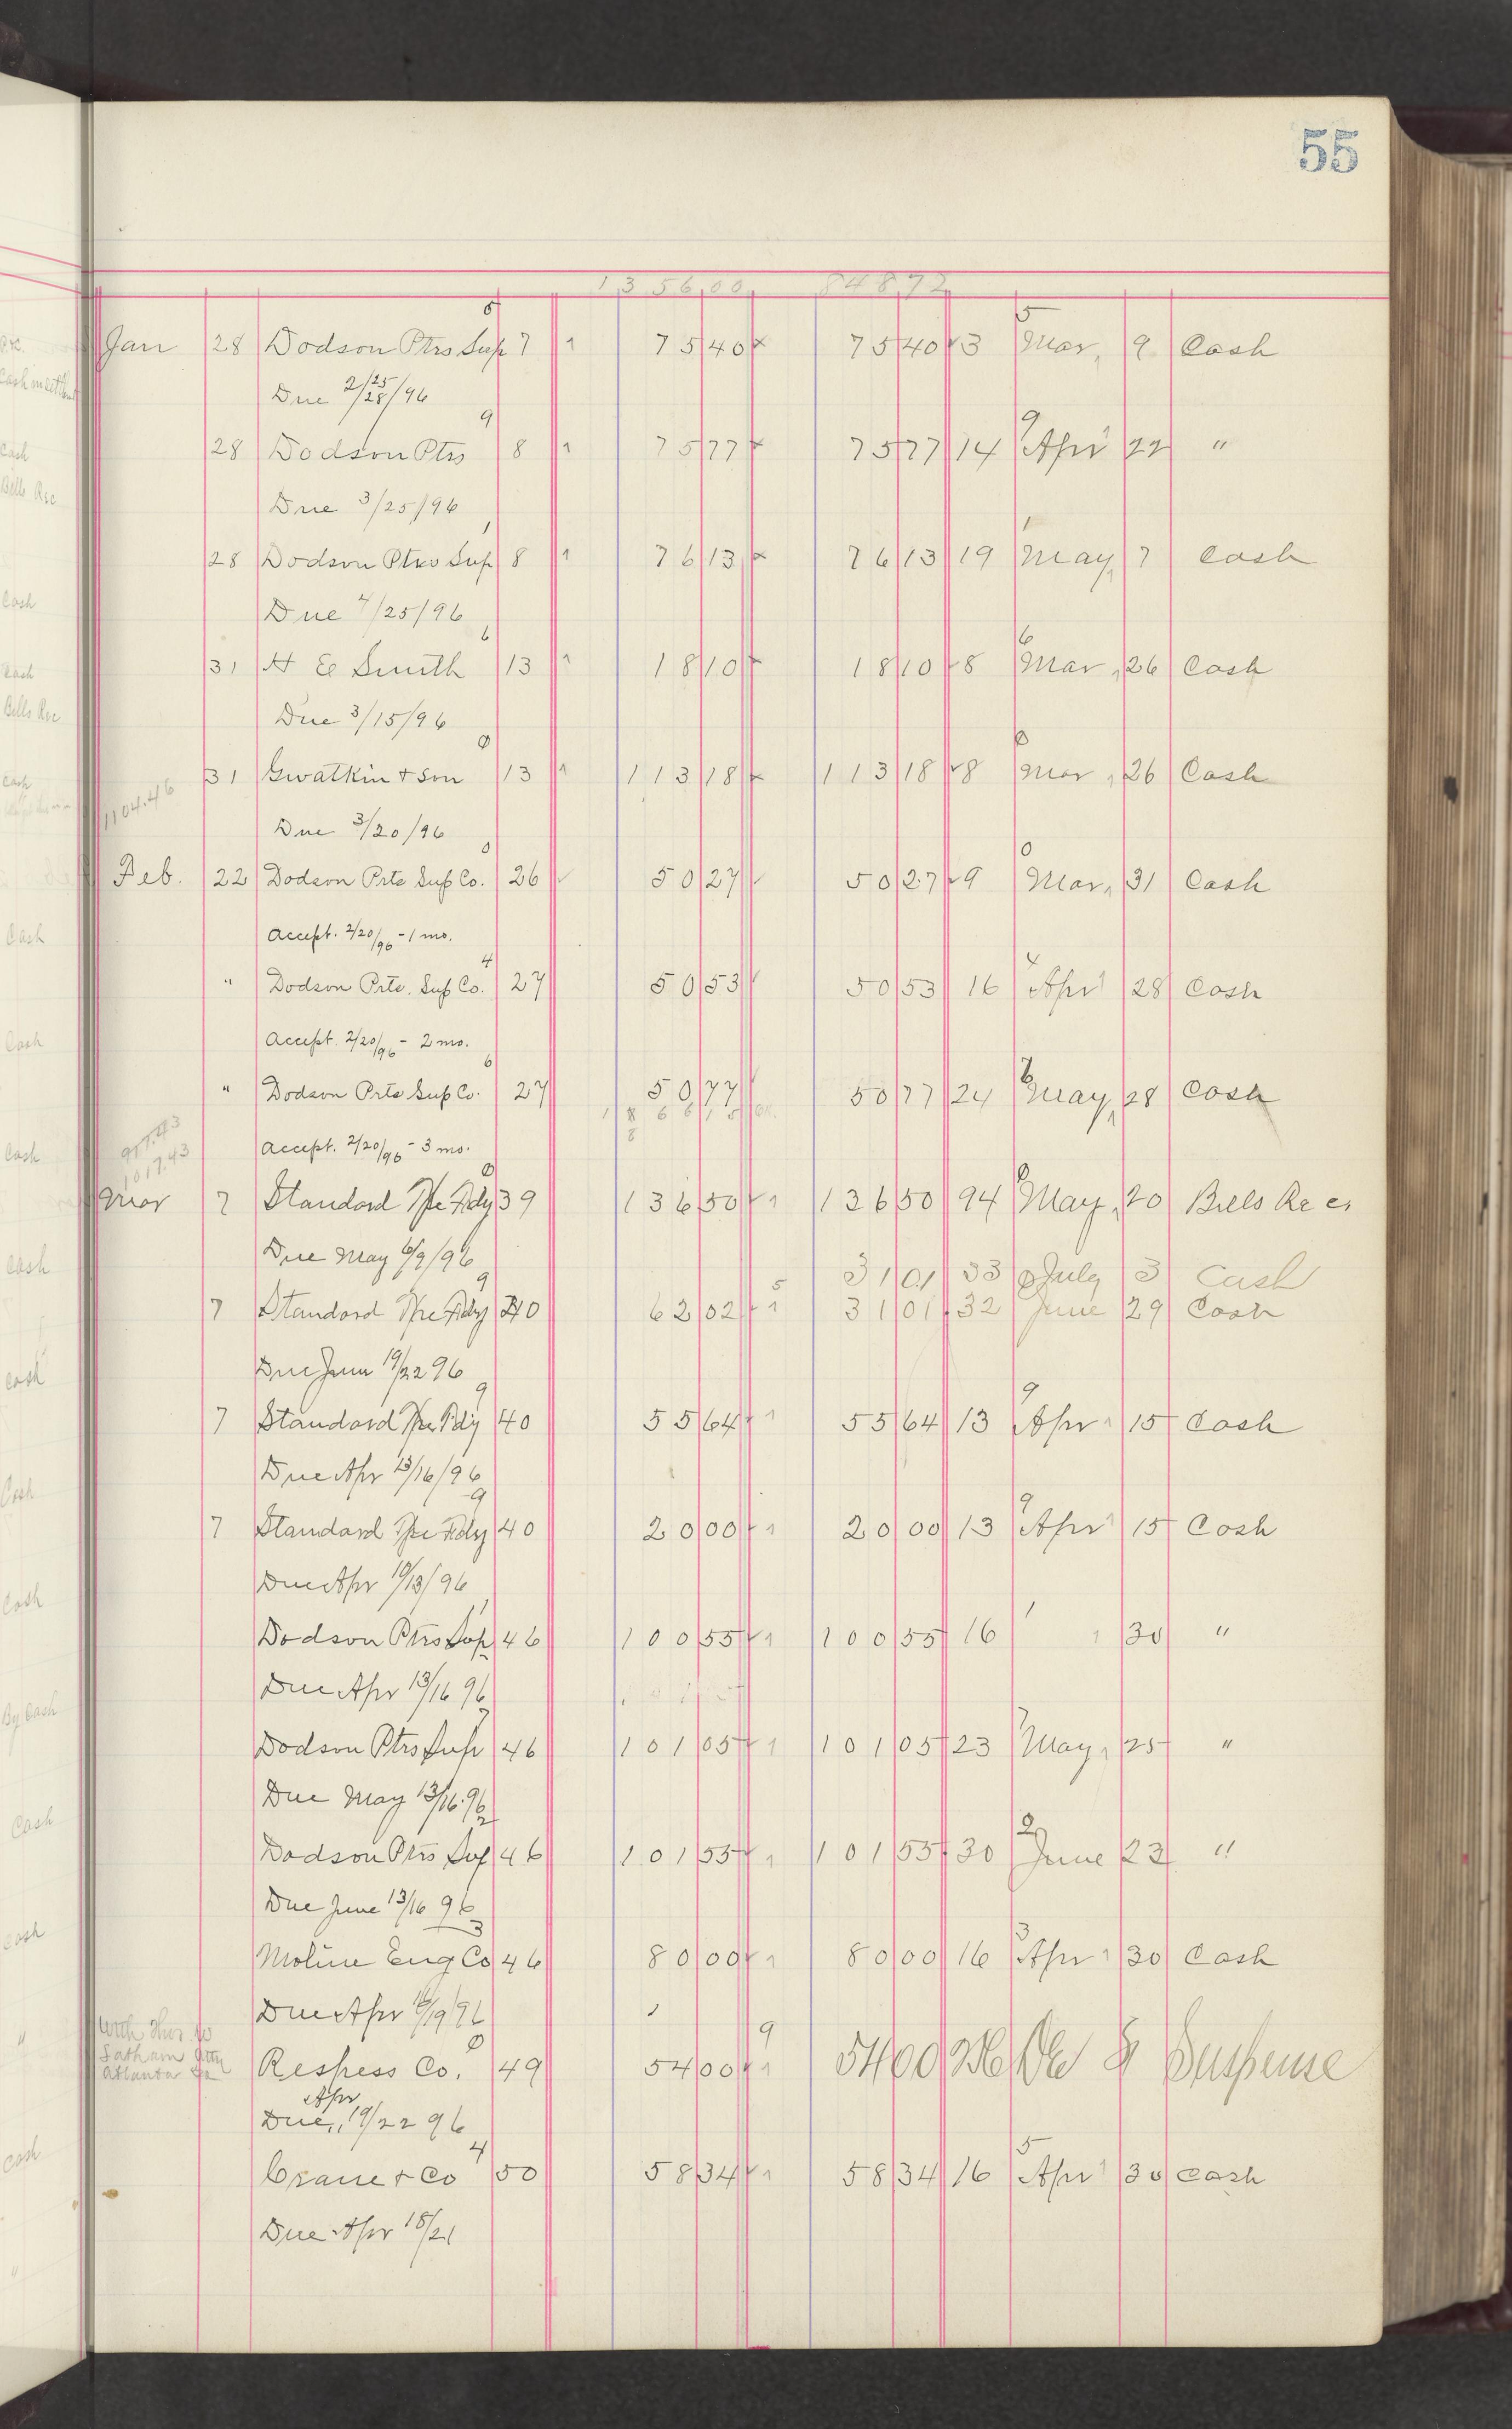 55
1356 00 848 72
5 5
Jan 28 Dodson Ptrs Sup 7 1 75 40 75 40 3 Mar, 9 Cash
Due 2/25/28/96
9 9
28 Dodson Ptrs 8 1 75 77 75 77 14 Apr 22 "
Due 3/25/96
1 1
28 Dodson Ptrs Sup 8 1 76 13 76 13 19 May 7 Cash
Due 4/25/96
6 6
31 H E Smith 13 1 18 10 18 10 8 Mar, 26 Cash
Due 3/15/96
0 0
31 Gwatkin + Son 13 1 113 18 113 18 8 Mar, 26 Cash
1104.46
Due 3/20/96
0 0
Feb. 22 Dodson Prte Sup Co. 26 50 27 50 27 9 Mar, 31 Cash
Accept. 2/20/96 - 1 mo.
4 4
" Dodson Prte. Sup Co. 27 50 53 50 53 16 Apr 28 Cash
Accept. 2/20/96 - 2 mo.
6
" Dodson Prte Sup Co. 27 50 77 50 77 24 May, 28 Cash
Accept. 2/20/96 - 3 mo.
1017.43
Mar 7 Standard Tpe Fdy 39 136 50 1 136 50 94 May, 20 Bills Rec
Due May 6/9/96
9 5 31 01 33 July 3 Cash
7 Standard Tpe Fdy 40 62 02 1 31 01 32 June 29 Cash
Due June 19/22 96
9 9
7 Standard Tpe Fdy 40 55 64 1 55 64 13 Apr 15 Cash
Due Apr 13/16/96
9 9
7 Standard Tpe Fdy 40 20 00 1 20 00 13 Apr 15 Cash
Due Apr 10/13/96
1 1
Dodson Ptrs Sup 46 100 55 1 100 55 16 30 "
Due Apr 13/16 96
Dodson Ptrs Sup 46 101 05 1 101 05 23 May, 25 "
Due May 13/16 96
2 2
Dodson Ptrs Sup 46 101 55 1 101 55 30 June 23 "
Due June 13/16 96
3 3
Moline Eng Co 46 80 00 1 80 00 16 Apr 30 Cash
Due Apr 16/19/96
0 9
Atlanta Ga
Respess Co. 49 54 00 1 54 00 Suspense
Apr
Due,, 19/22 96
4 5
Crane + Co 50 58 34 1 58 34 16 Apr 30 Cash
Due Apr 18/21